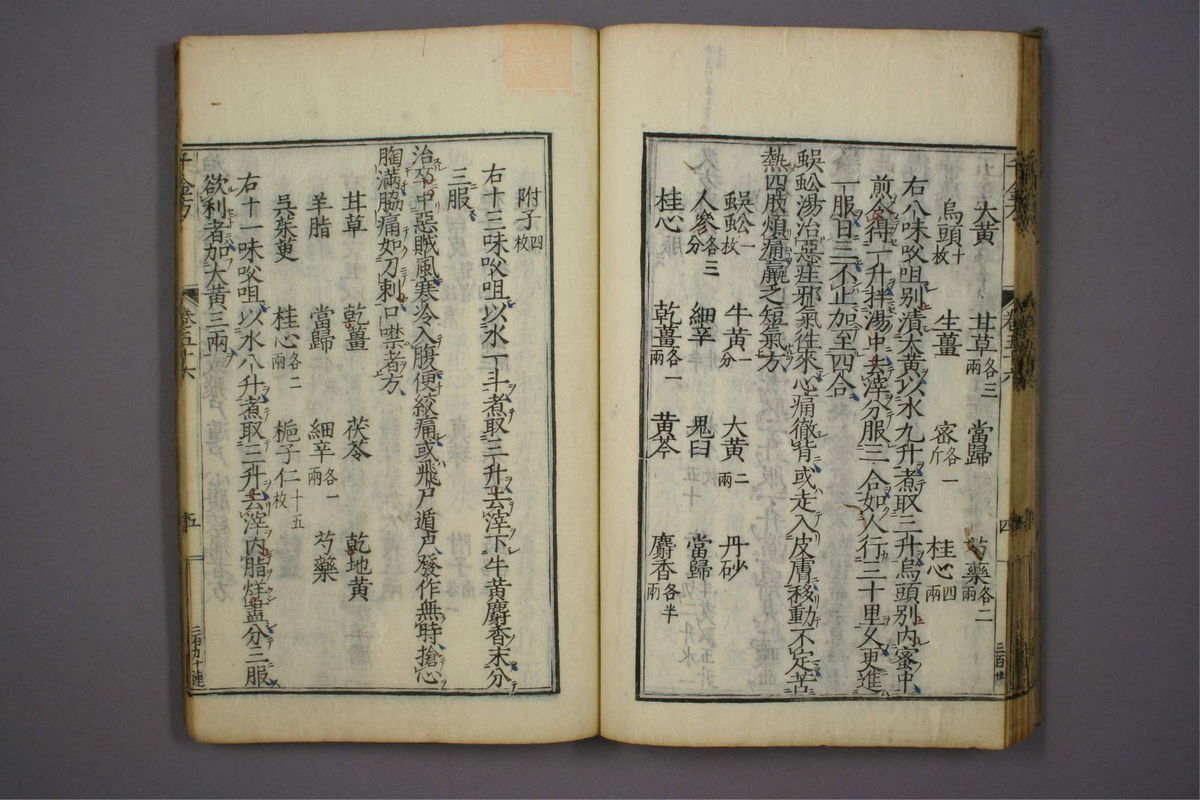 大黃 甘草各三兩 當歸 芍藥各二兩
烏頭十枚 生薑 蜜各一斤 桂心四兩
右八味㕮咀別漬大黃以水九升煮取三升烏頭別內蜜中
煎令得一升投湯中去滓分服三合如人行三十里久更進
一服日三不止加至四合
蜈蚣湯治惡疰邪氣往來心痛徹背或走入皮膚移動不定苦
熱四肢煩痛羸乏短氣方
蜈蚣一枚 牛黃一分 大黃二兩 丹砂
人參各三分 細辛 鬼臼 當歸
桂心 乾薑各一兩 黃芩 麝香各半兩
附子四枚
右十三味㕮咀以水一斗煮取三升去滓下牛黃麝香末分
三服
治卒中惡賊風寒冷入腹便絞痛或飛尸遁尸發作無時搶心
胸滿脇痛如刀刺口噤者方
甘草 乾薑 茯苓 乾地黃
羊脂 當歸 細辛各一兩 芍藥
吳茱萸 桂心各二兩 梔子仁十五枚
右十一味㕮咀以水八升煮取三升去滓內脂烊盡分三服
欲利者加大黃三兩
千金方 卷五十六 五